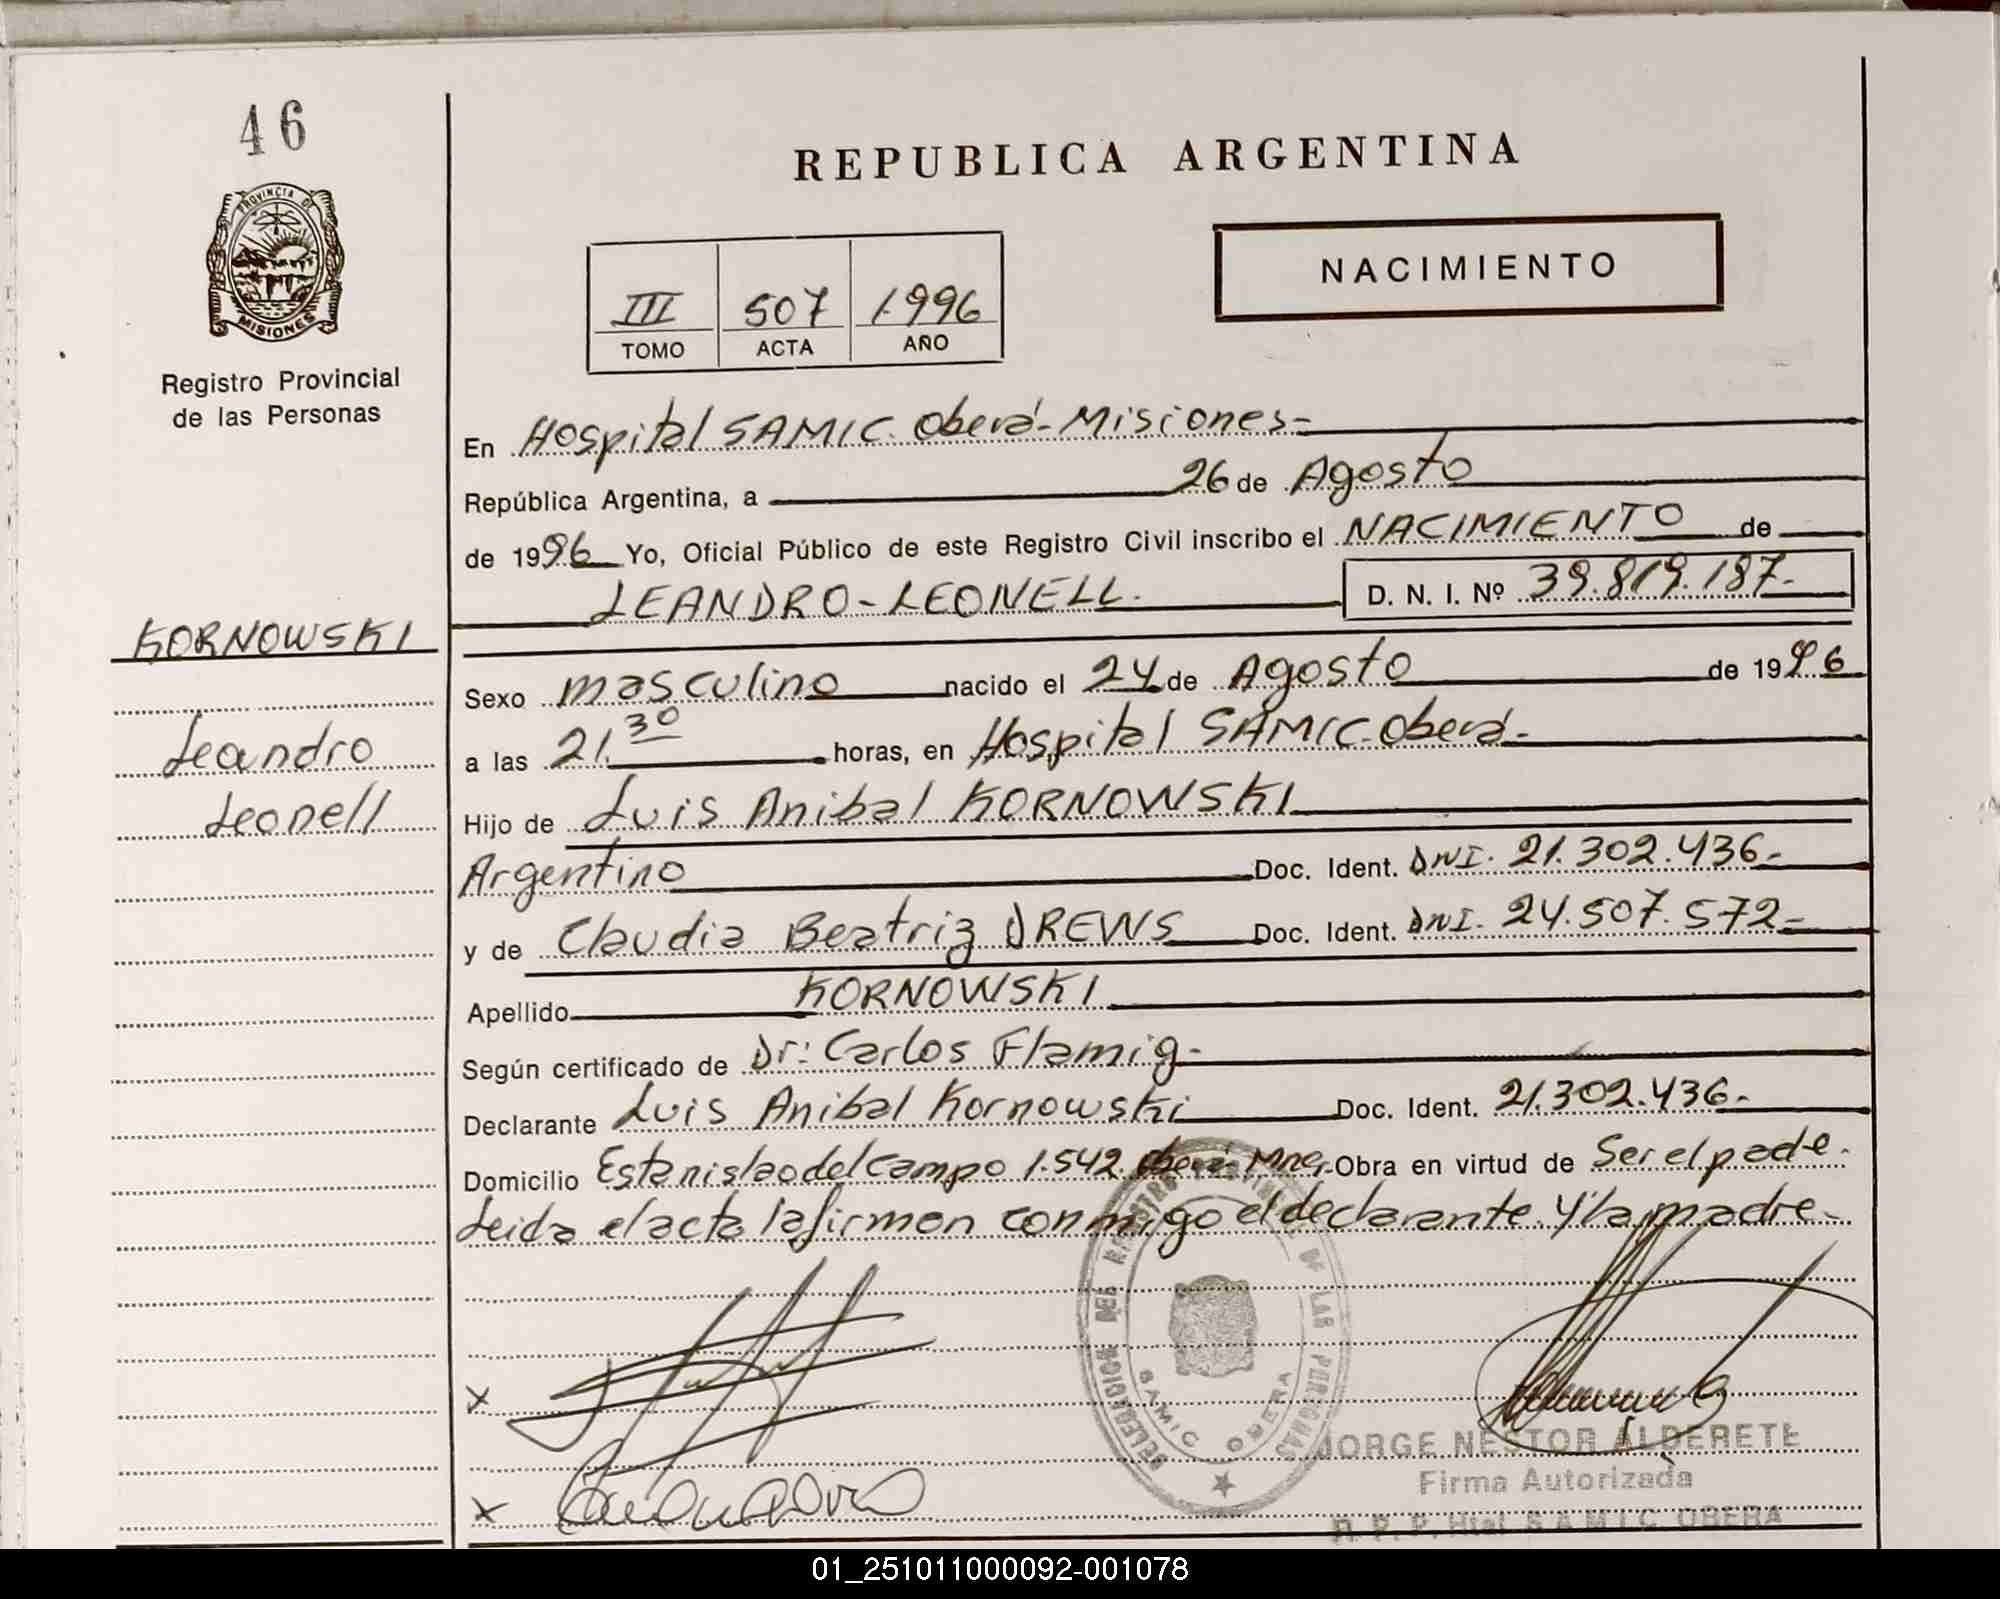 46
PROVINCIA DE
MISIONES
Registro Provincial
de las Personas
REPUBLICA ARGENTINA
NACIMIENTO
III 507 1.996
TOMO ACTA AÑO
En Hospital SAMIC. Oberá-Misiones-
República Argentina, a 26 de Agosto
de 1996 Yo, Oficial Público de este Registro Civil inscribo el NACIMIENTO de
LEANDRO-LEONELL. D. N. I. Nº 39.819.187-
KORNOWSKI
Leandro
Leonell
Sexo masculino nacido el 24 de Agosto de 1996
a las 21.30 horas, en Hospital SAMIC-Oberá-
Hijo de Luis Anibal KORNOWSKI
Argentino Doc. Ident. DNI. 21.302.436-
y de Claudia Beatriz DREWS Doc. Ident. DNI. 24.507.572-
Apellido KORNOWSKI
Según certificado de Dr: Carlos Flamig-
Declarante Luis Anibal Kornowski Doc. Ident. 21.302.436-
Domicilio Estanislao del Campo 1.542. Oberá-Mnes. Obra en virtud de Ser el padre.
Leida el acta la firman conmigo el declarante y la madre-
DELEGACION DEL REGISTRO PROVINCIAL DE LAS PERSONAS
SAMIC OBERA
x
x
JORGE NESTOR ALDERETE
Firma Autorizada
R. P. P. Htal SAMIC OBERA
01_251011000092-001078